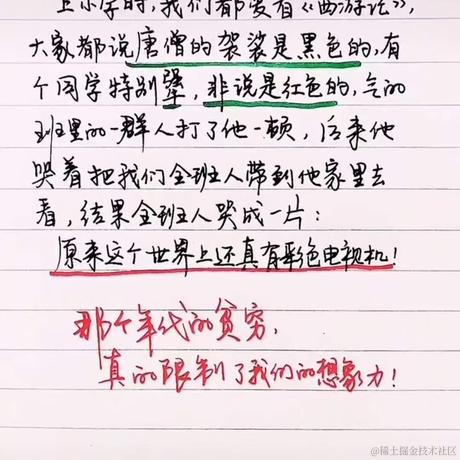 上小学时,我们都爱看《西游记》,
大家都说唐僧的袈裟是黑色的,有
个同学特别犟,非说是红色的,气的
班里的一群人打了他一顿,后来他
哭着把我们全班人带到他家里去
看,结果全班人哭成一片:
原来这个世界上还真有彩色电视机!
那个年代的贫穷,
真的限制了我们的想象力!
@稀土掘金技术社区